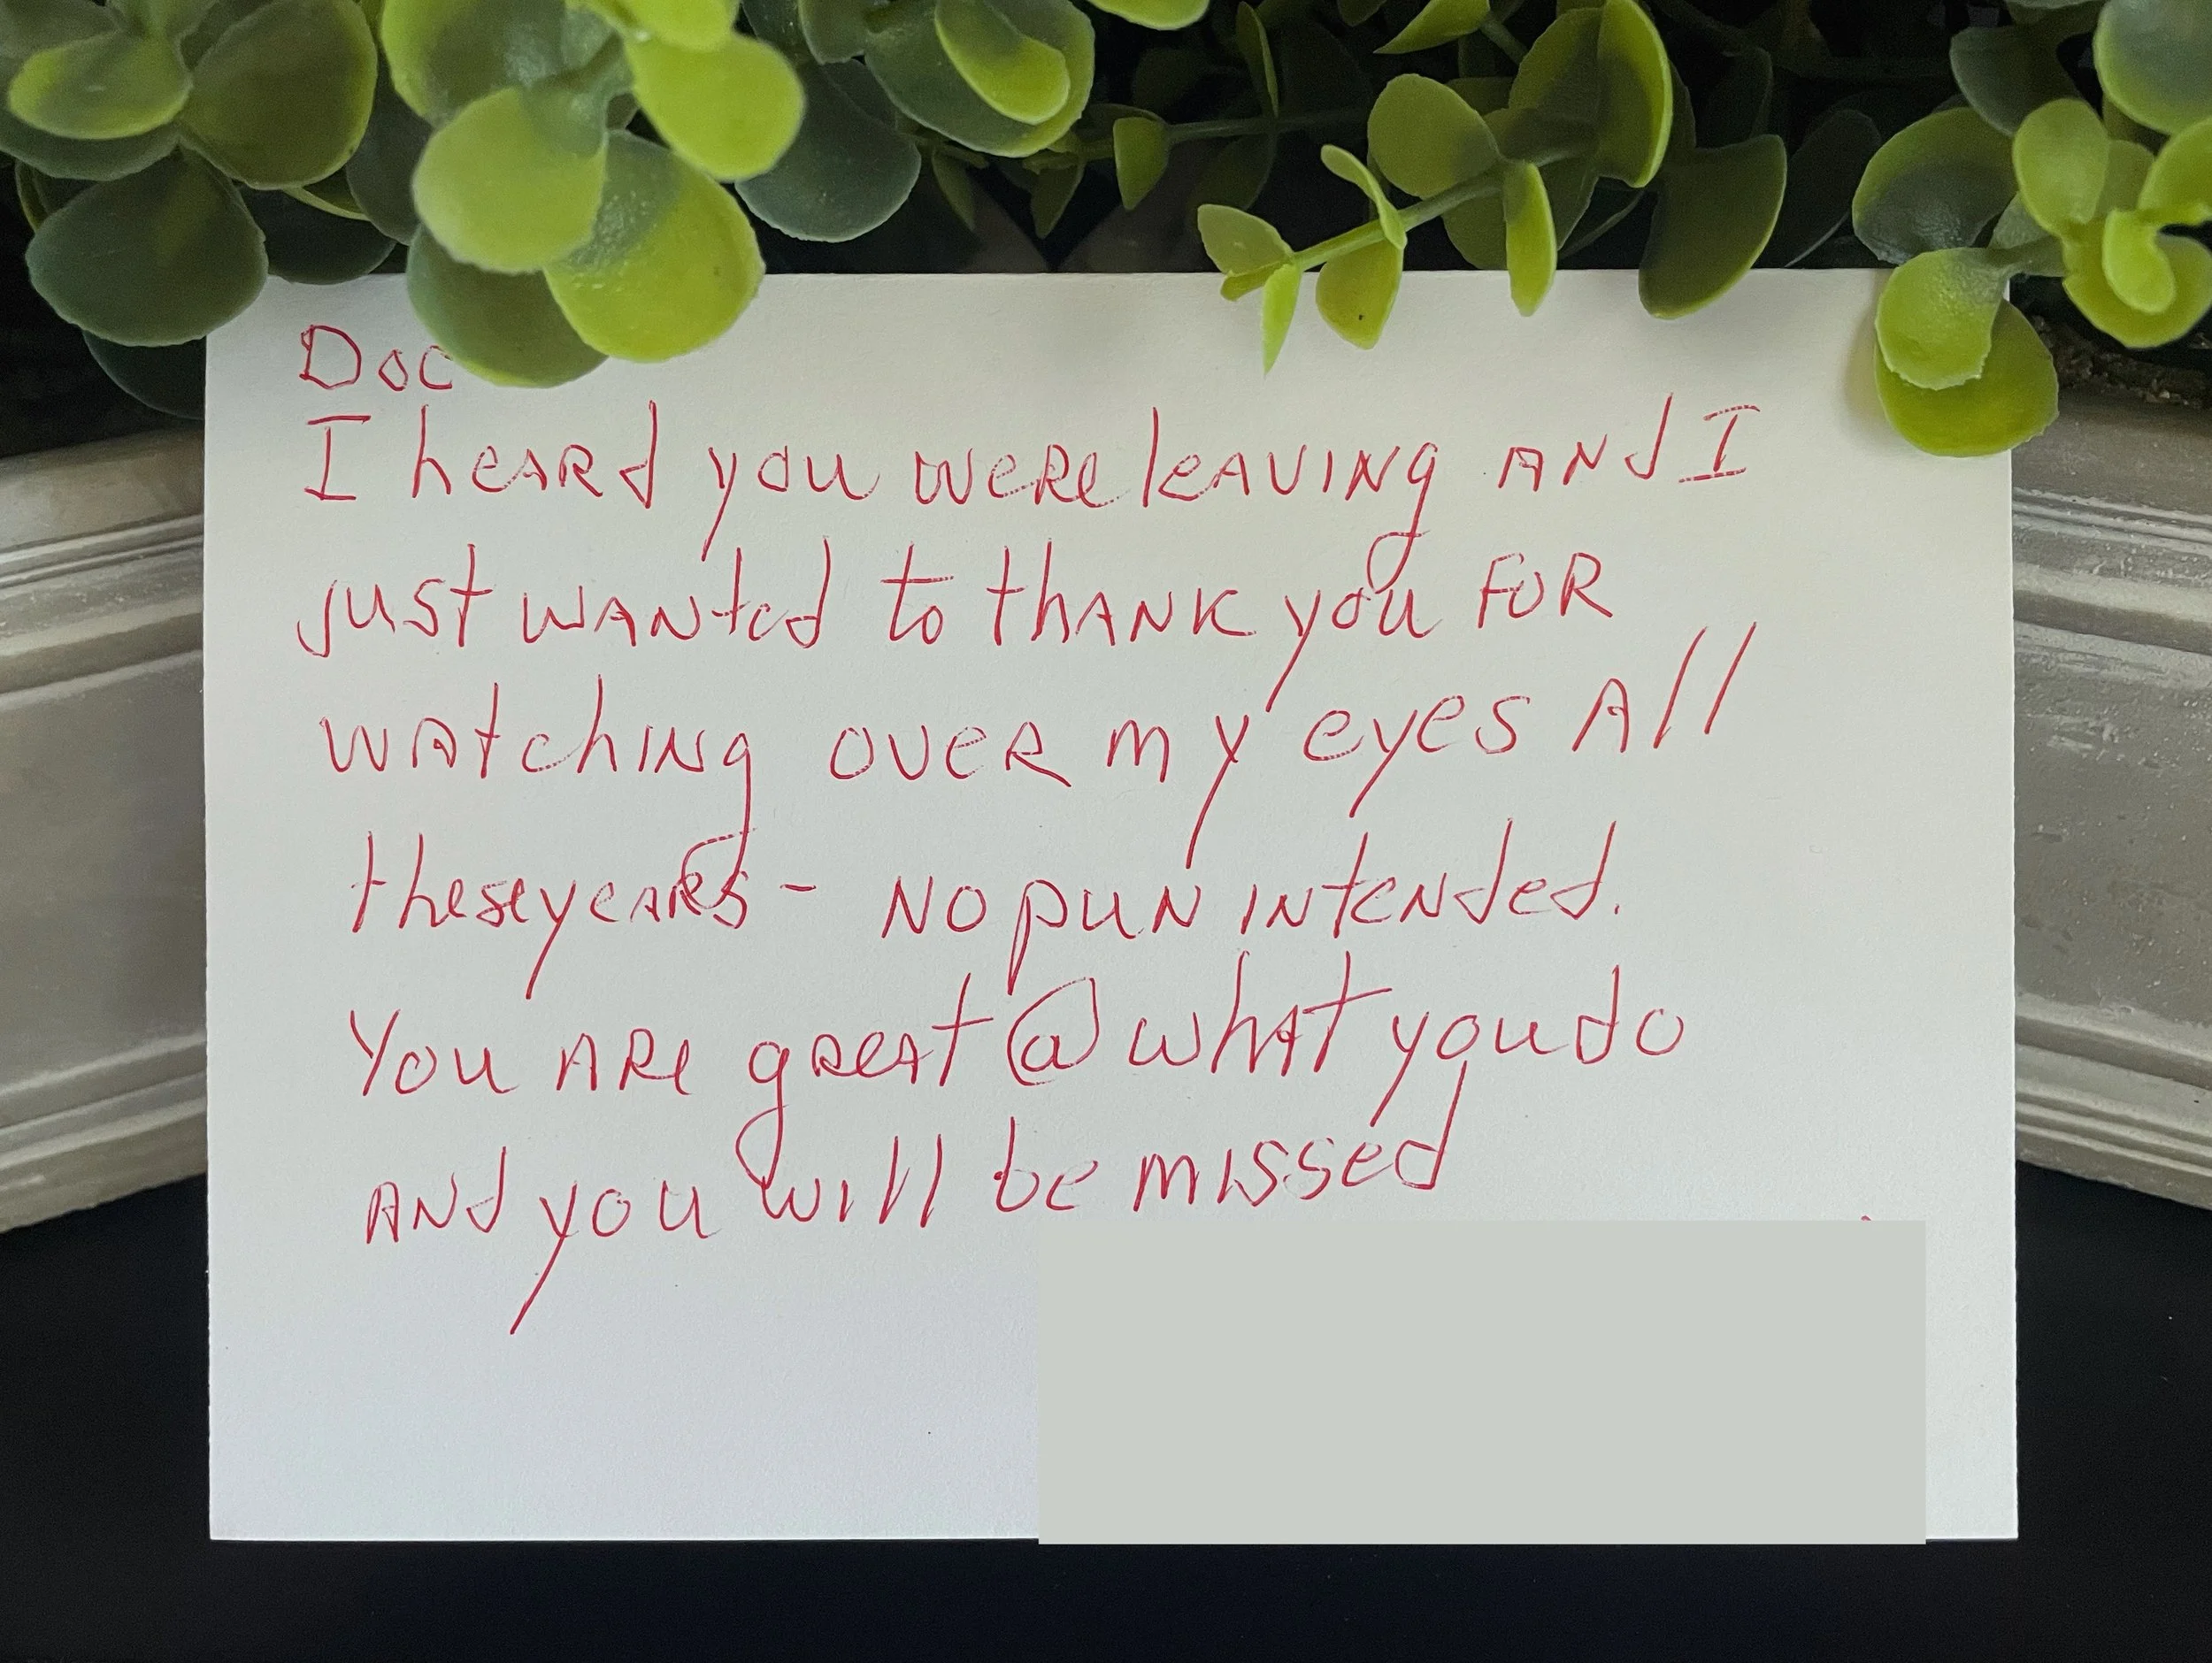 Doc
I heard you were leaving and I
just wanted to thank you for
watching over my eyes all
these years - no pun intended.
You are great @ what you do
and you will be missed